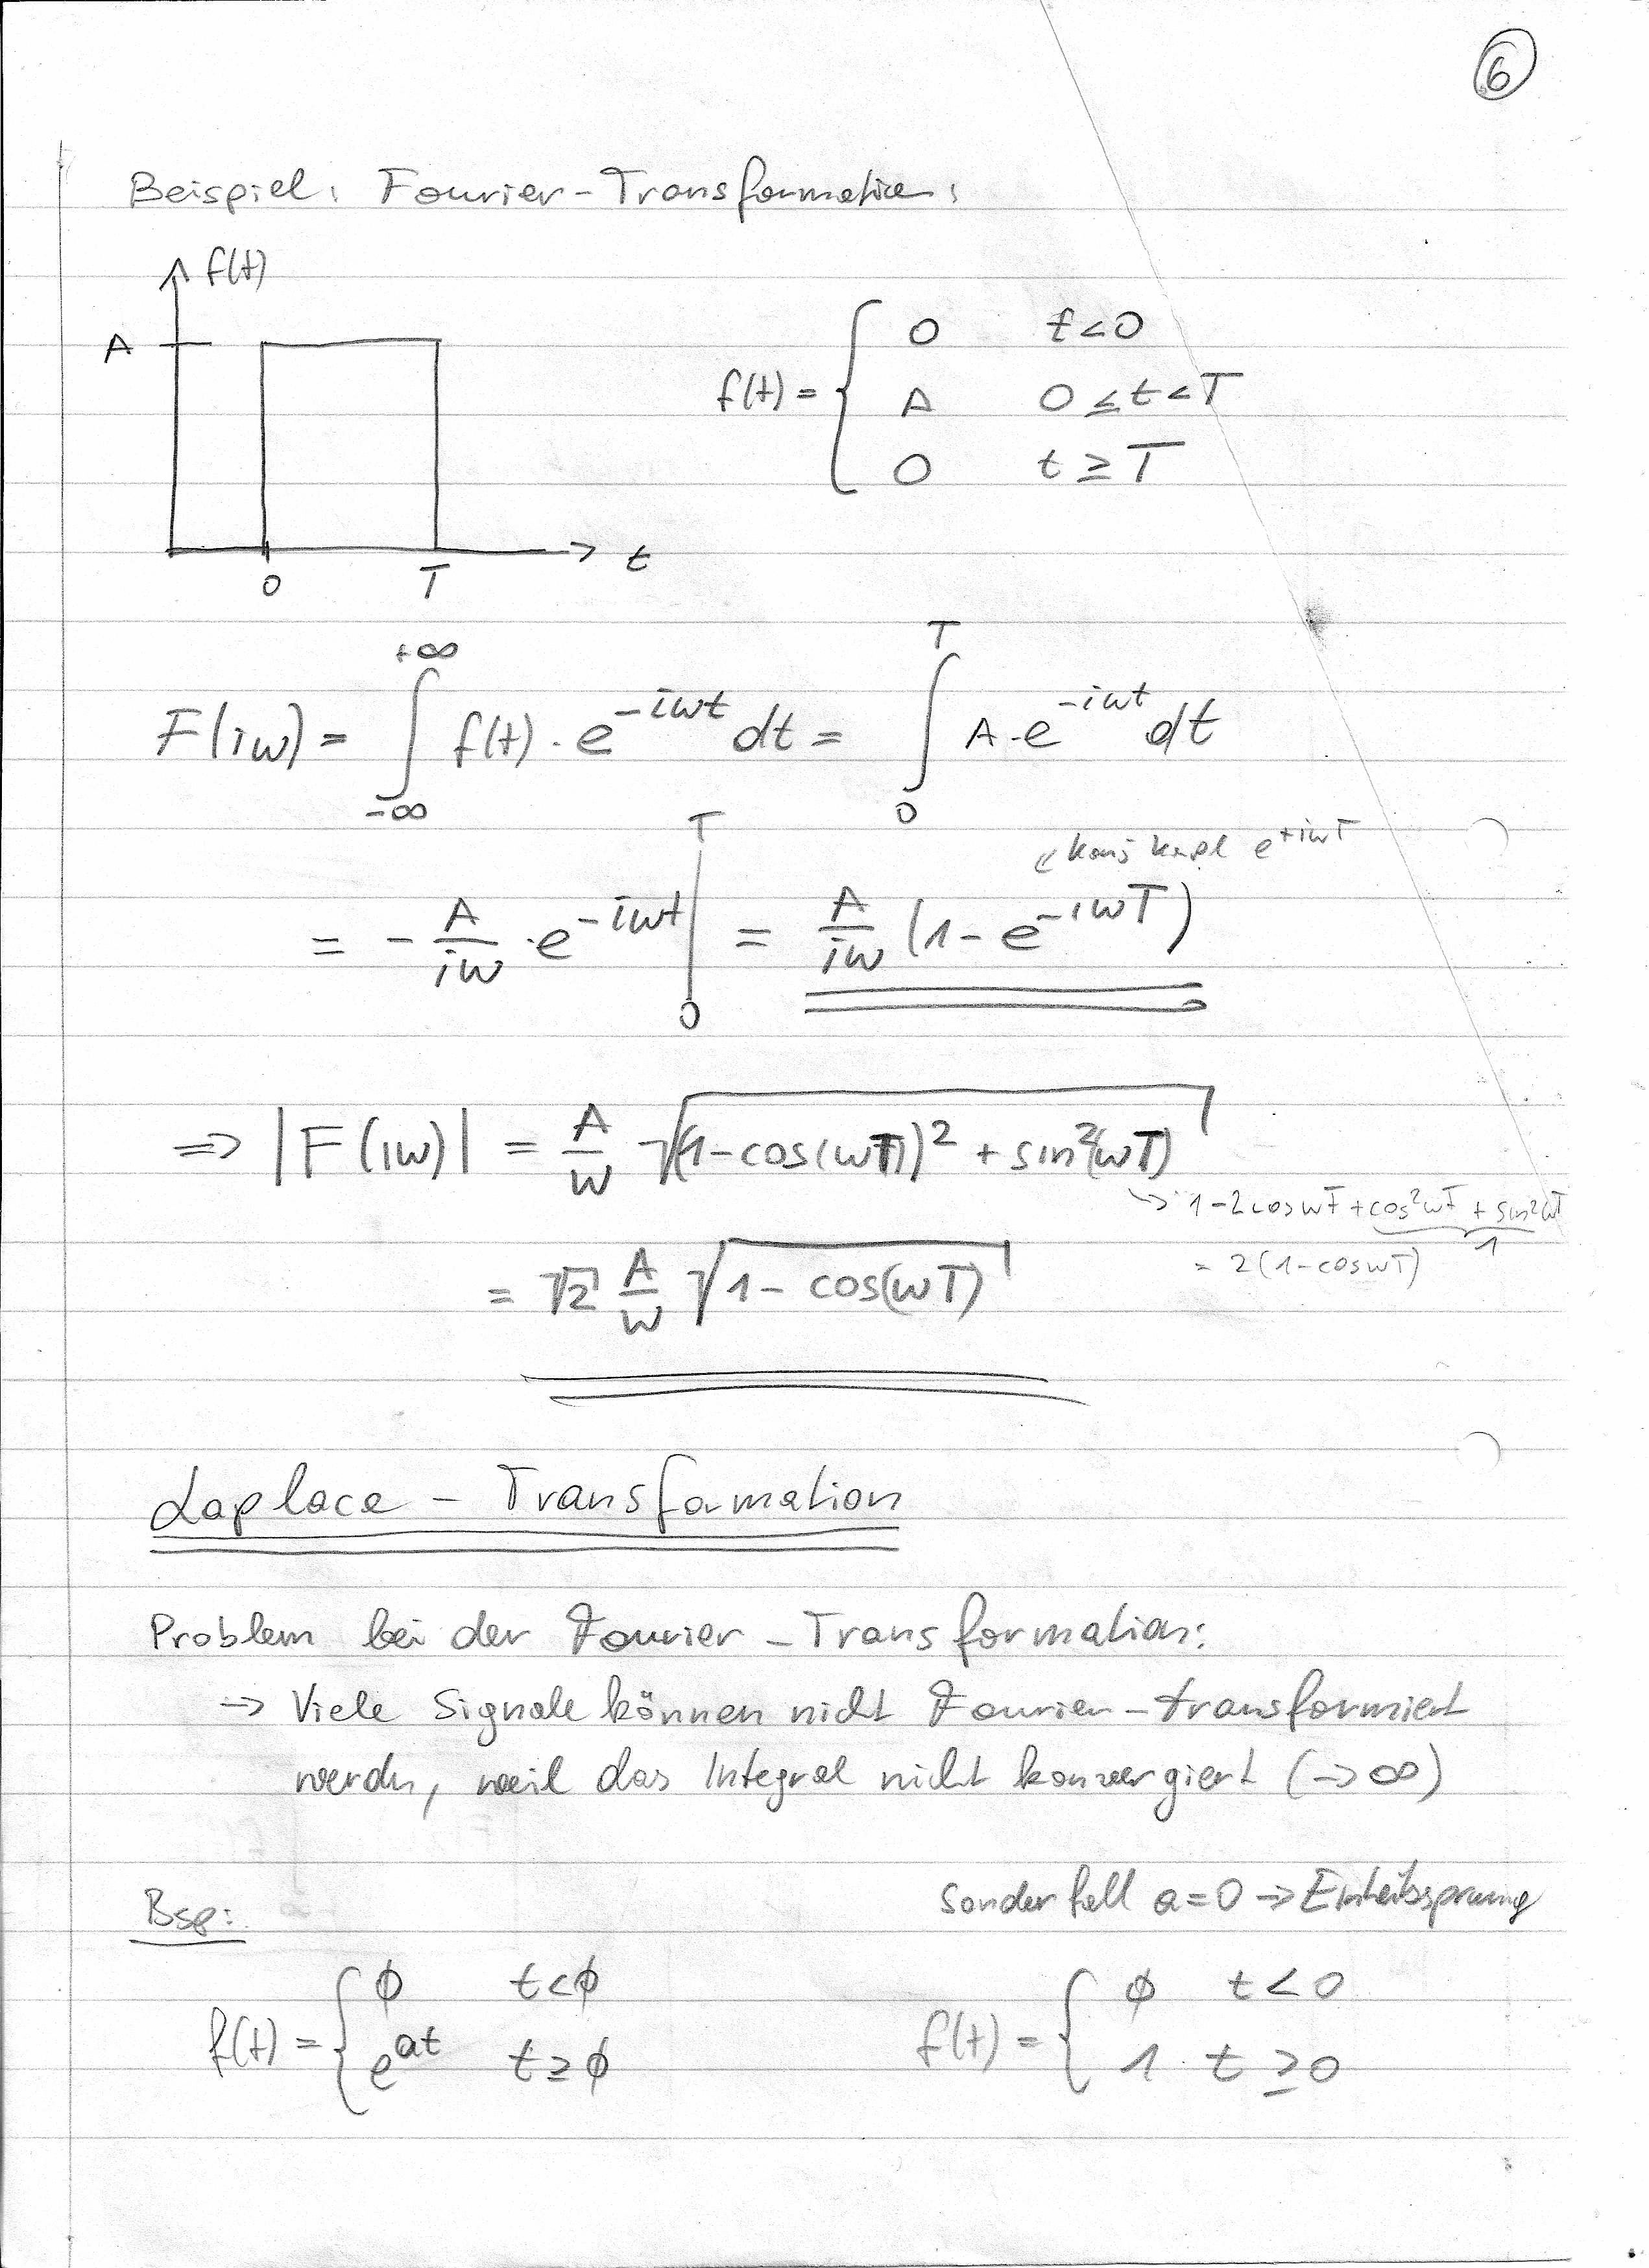 6
Beispiel: Fourier-Transformation:
f(t)
A
0 T t
f(t) = { 0 t<0
A 0 ≤ t < T
0 t ≥ T
F(iω) = ∫_{-∞}^{+∞} f(t) · e^{-iωt} dt = ∫_0^T A · e^{-iωt} dt
konj kompl e^{+iωT}
= - A/iω · e^{-iωt} |_0^T = A/iω (1 - e^{-iωT})
=> |F(iω)| = A/ω √((1-cos(ωT))² + sin²(ωT))
-> 1-2cosωT + cos²ωT + sin²ωT
1
= 2(1-cosωT)
= √2 A/ω √(1 - cos(ωT))
Laplace - Transformation
Problem bei der Fourier-Transformation:
-> Viele Signale können nicht Fourier-transformiert
werden, weil das Integral nicht konvergiert (-> ∞)
Bsp:
f(t) = { ϕ t<ϕ
e^{at} t ≥ ϕ
Sonderfall a=0 -> Einheitssprung
f(t) = { ϕ t < 0
1 t ≥ 0